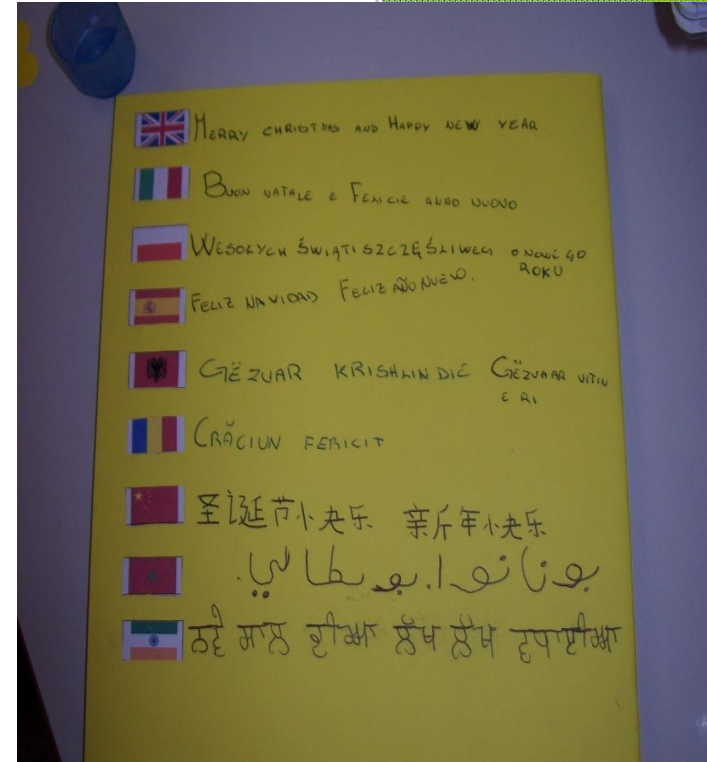 MERRY CHRISTMAS AND HAPPY NEW YEAR
BUON NATALE E FELICIE ANNO NUOVO
WESOŁYCH ŚWIĄT I SZCZĘŚLIWEG ONOWEGO
ROKU
FELIZ NAVIDAD FELIZ AÑO NUEVO.
GËZUAR KRISHLINDIE GËZUAAR VITIN
E RI
CRĂCIUN FERICIT
圣诞节快乐 新年快乐
بونانوا. بو
ਨਵੇ ਸਾਲ ਦੀਆ ਲੱਖ ਲੱਖ ਵਧਾਈਆ